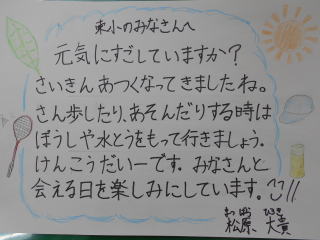 東小のみなさんへ
元気にすごしていますか?
さいきん あつくなってきましたね。
さん歩したり、あそんだりする時は
ぼうしや水とうをもって行きましょう。
けんこうだいーです。みなさんと
会える日を楽しみにしています。
まつばら ひろき
松原 大貴